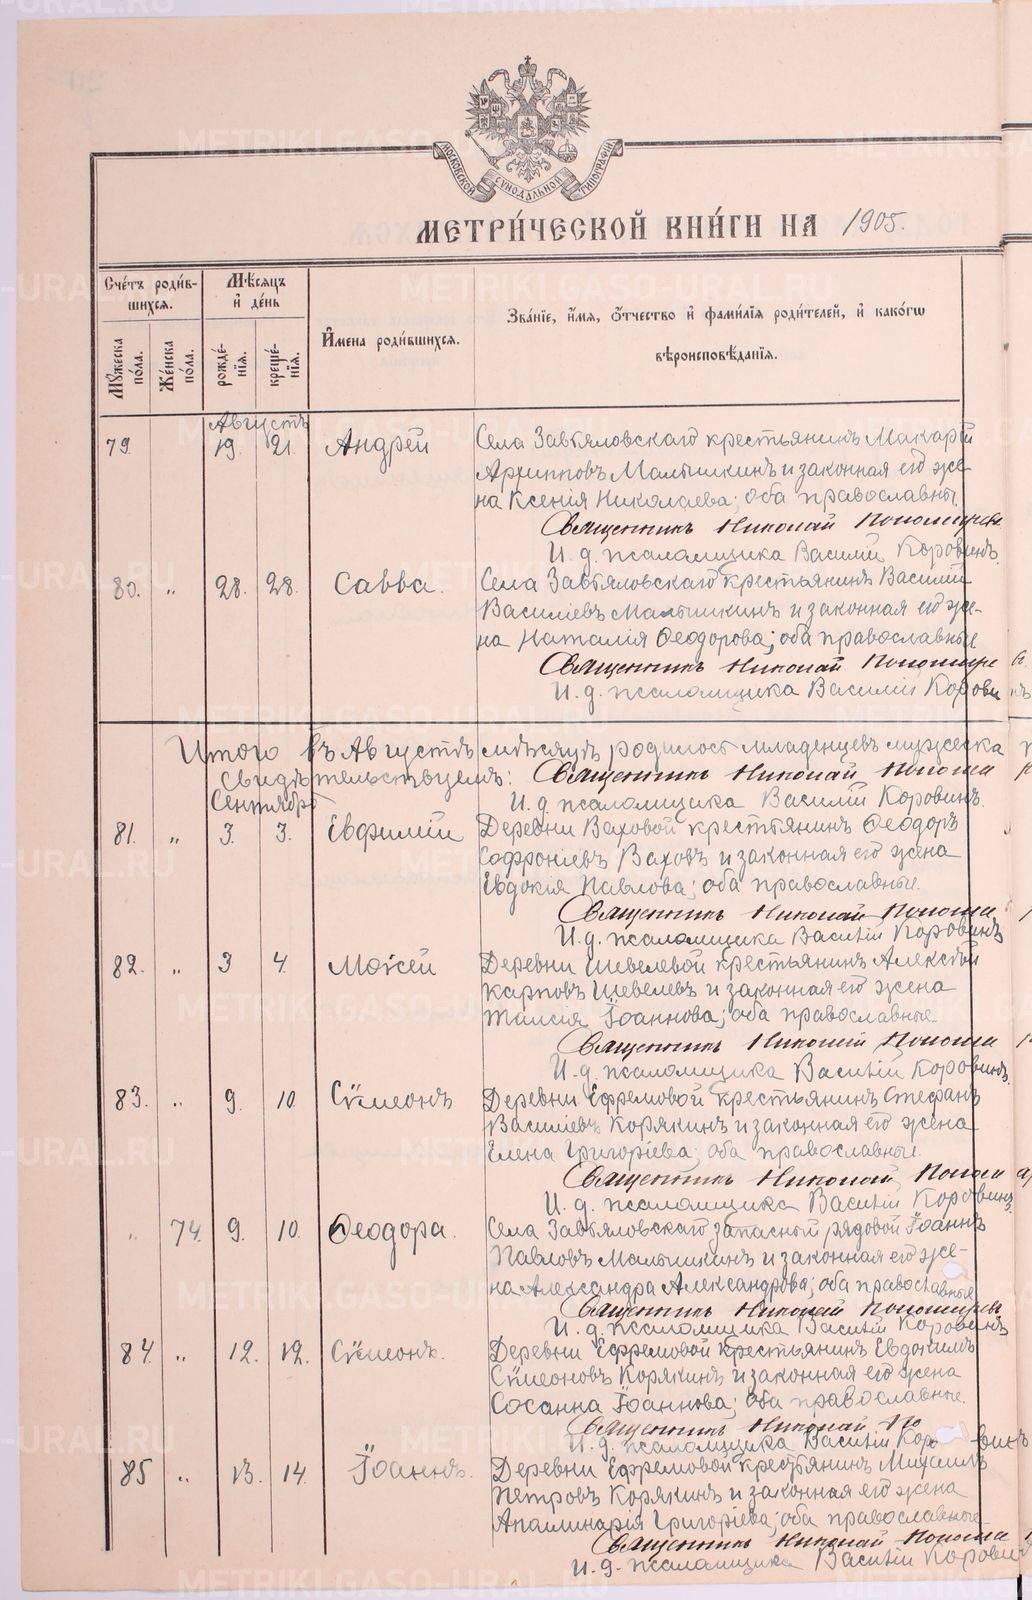 МОСКОВСКОЙ СѴНОДАЛЬНОЙ ТИПОГРАФІИ
МЕТРИ́ЧЕСКОЙ КНИ́ГИ НА 1905.
Сче́тъ роди́в-
шихся.
Мѣ́сяцъ
и҆ де́нь
Мꙋ́жеска
по́ла.
Же́нска
по́ла.
рожде́-
нїя.
креще́-
нїя.
И҆мена роди́вшихся.
Зва́нїе, и҆́мя, ѻ҆́тчество и҆ фами́лїя роди́телей, и҆ како́гѡ
вѣроисповѣ́данїя.
Августъ
79. 19. 21. Андрей Села Завьяловскаго крестьянинъ Макарій
Архипповъ Малышкинъ и законная его же-
на Ксенія Николаева; оба православны.
Священникъ Николай Пономарев
И. д. псаломщика Василій Коровинъ.
80. „ 28. 28. Савва. Села Завьяловскаго крестьянинъ Василій
Василіевъ Малышкинъ и законная его же-
на Наталія Ѳеодорова; оба православные
Священникъ Николай Пономаре въ
И. д. псаломщика Василій Корови нъ
Итого въ Августѣ мѣсяцѣ родилось младенцевъ мужеска
Свидѣтельствуемъ: Священникъ Николай Понома р
Сентябрь И. д. псаломщика Василій Коровинъ.
81. „ 3. 3. Евфимій Деревни Ваховой крестьянинъ Ѳеодоръ
Софроніевъ Ваховъ и законная его жена
Евдокія Павлова; оба православные.
Священникъ Николай Понома
И. д. псаломщика Василій Коровинъ
82. „ 3 4. Моѵсей Деревни Шевелевой крестьянинъ Алексѣй
Карповъ Шевелевъ и законная его жена
Таисія Іоаннова; оба православные.
Священникъ Николай Понома р
И. д. псаломщика Василій Коровинъ.
83. „ 9. 10. Сѵмеонъ Деревни Ефремовой крестьянинъ Стефанъ
Василіевъ Корякинъ и законная его жена
Елена Григоріева; оба православны.
Священникъ Николай Поном ар
И. д. псаломщика Василій Коровинъ
„ 74. 9. 10. Ѳеодора. Села Завьяловскаго запасный рядовой Іоаннъ
Павловъ Малышкинъ и законная его же-
на Александра Александрова; оба православные
Священникъ Николай Пономарев
И. д. псаломщика Василій Коровинъ
84. „ 12. 12. Сѵмеонъ. Деревни Ефремовой крестьянинъ Евдокимъ
Сѵмеоновъ Корякинъ и законная его жена
Сосанна Іоаннова; оба православные.
Священникъ Николай По
И. д. псаломщика Василій Коро винъ
85 „ 13. 14. Іоаннъ. Деревни Ефремовой крестьянинъ Михаилъ
Петровъ Корякинъ и законная его жена
Апалинарія Григоріева; оба православные
Священникъ Николай Понома
И. д. псаломщика Василій Корови
METRIKI.GASO-URAL.RU